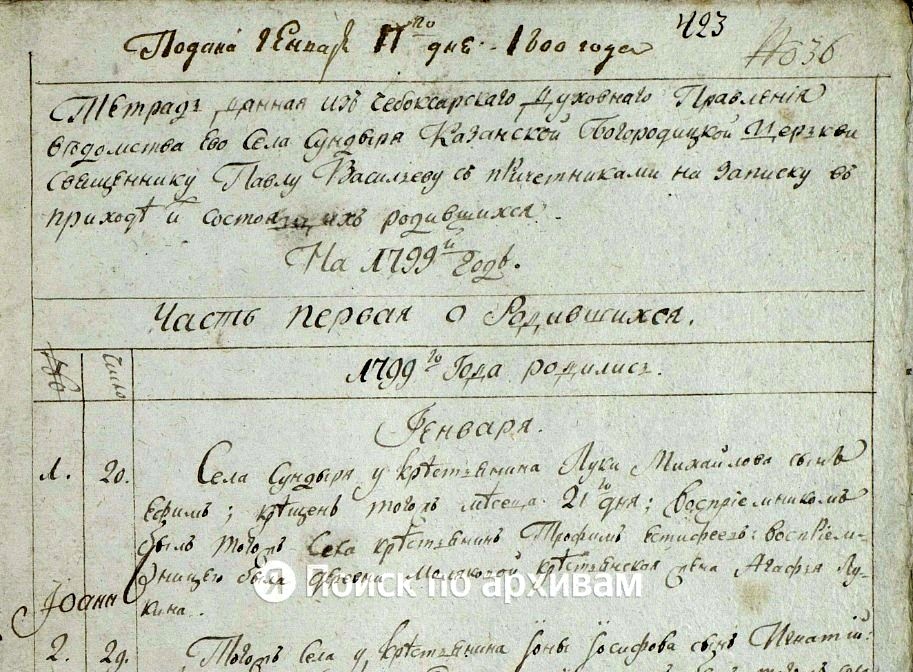 Подана Генваря 11го дня 1800 года
423
№ 36
Тетрадь данная изъ Чебоксарскаго Духовнаго Правленія
вѣдомства Его Села Сундыря Казанской Богородицкой Церкви
священнику Павлу Васильеву съ причетниками на записку въ
приходѣ и состоящихъ родившихся.
На 1799й Годъ.
Часть первая о Родившихся.
№
число
1799го Года родились.
Генваря.
1. 20. Села Сундыря у крѣстьянина Луки Михайлова сынъ
Ефимъ; крѣщенъ тогожъ месеца 21го дня; воспріемникомъ
былъ тогожъ Села крѣстьянинъ Трофимъ Естифеевъ: воспріем-
ницею была деревни крѣстьянская Агафья Лу-
кина.
Іоаннъ
2. 29. Тогожъ Села у крѣстьянина Іоны Іосифова сынъ Игнатій:
Поиск по архивам